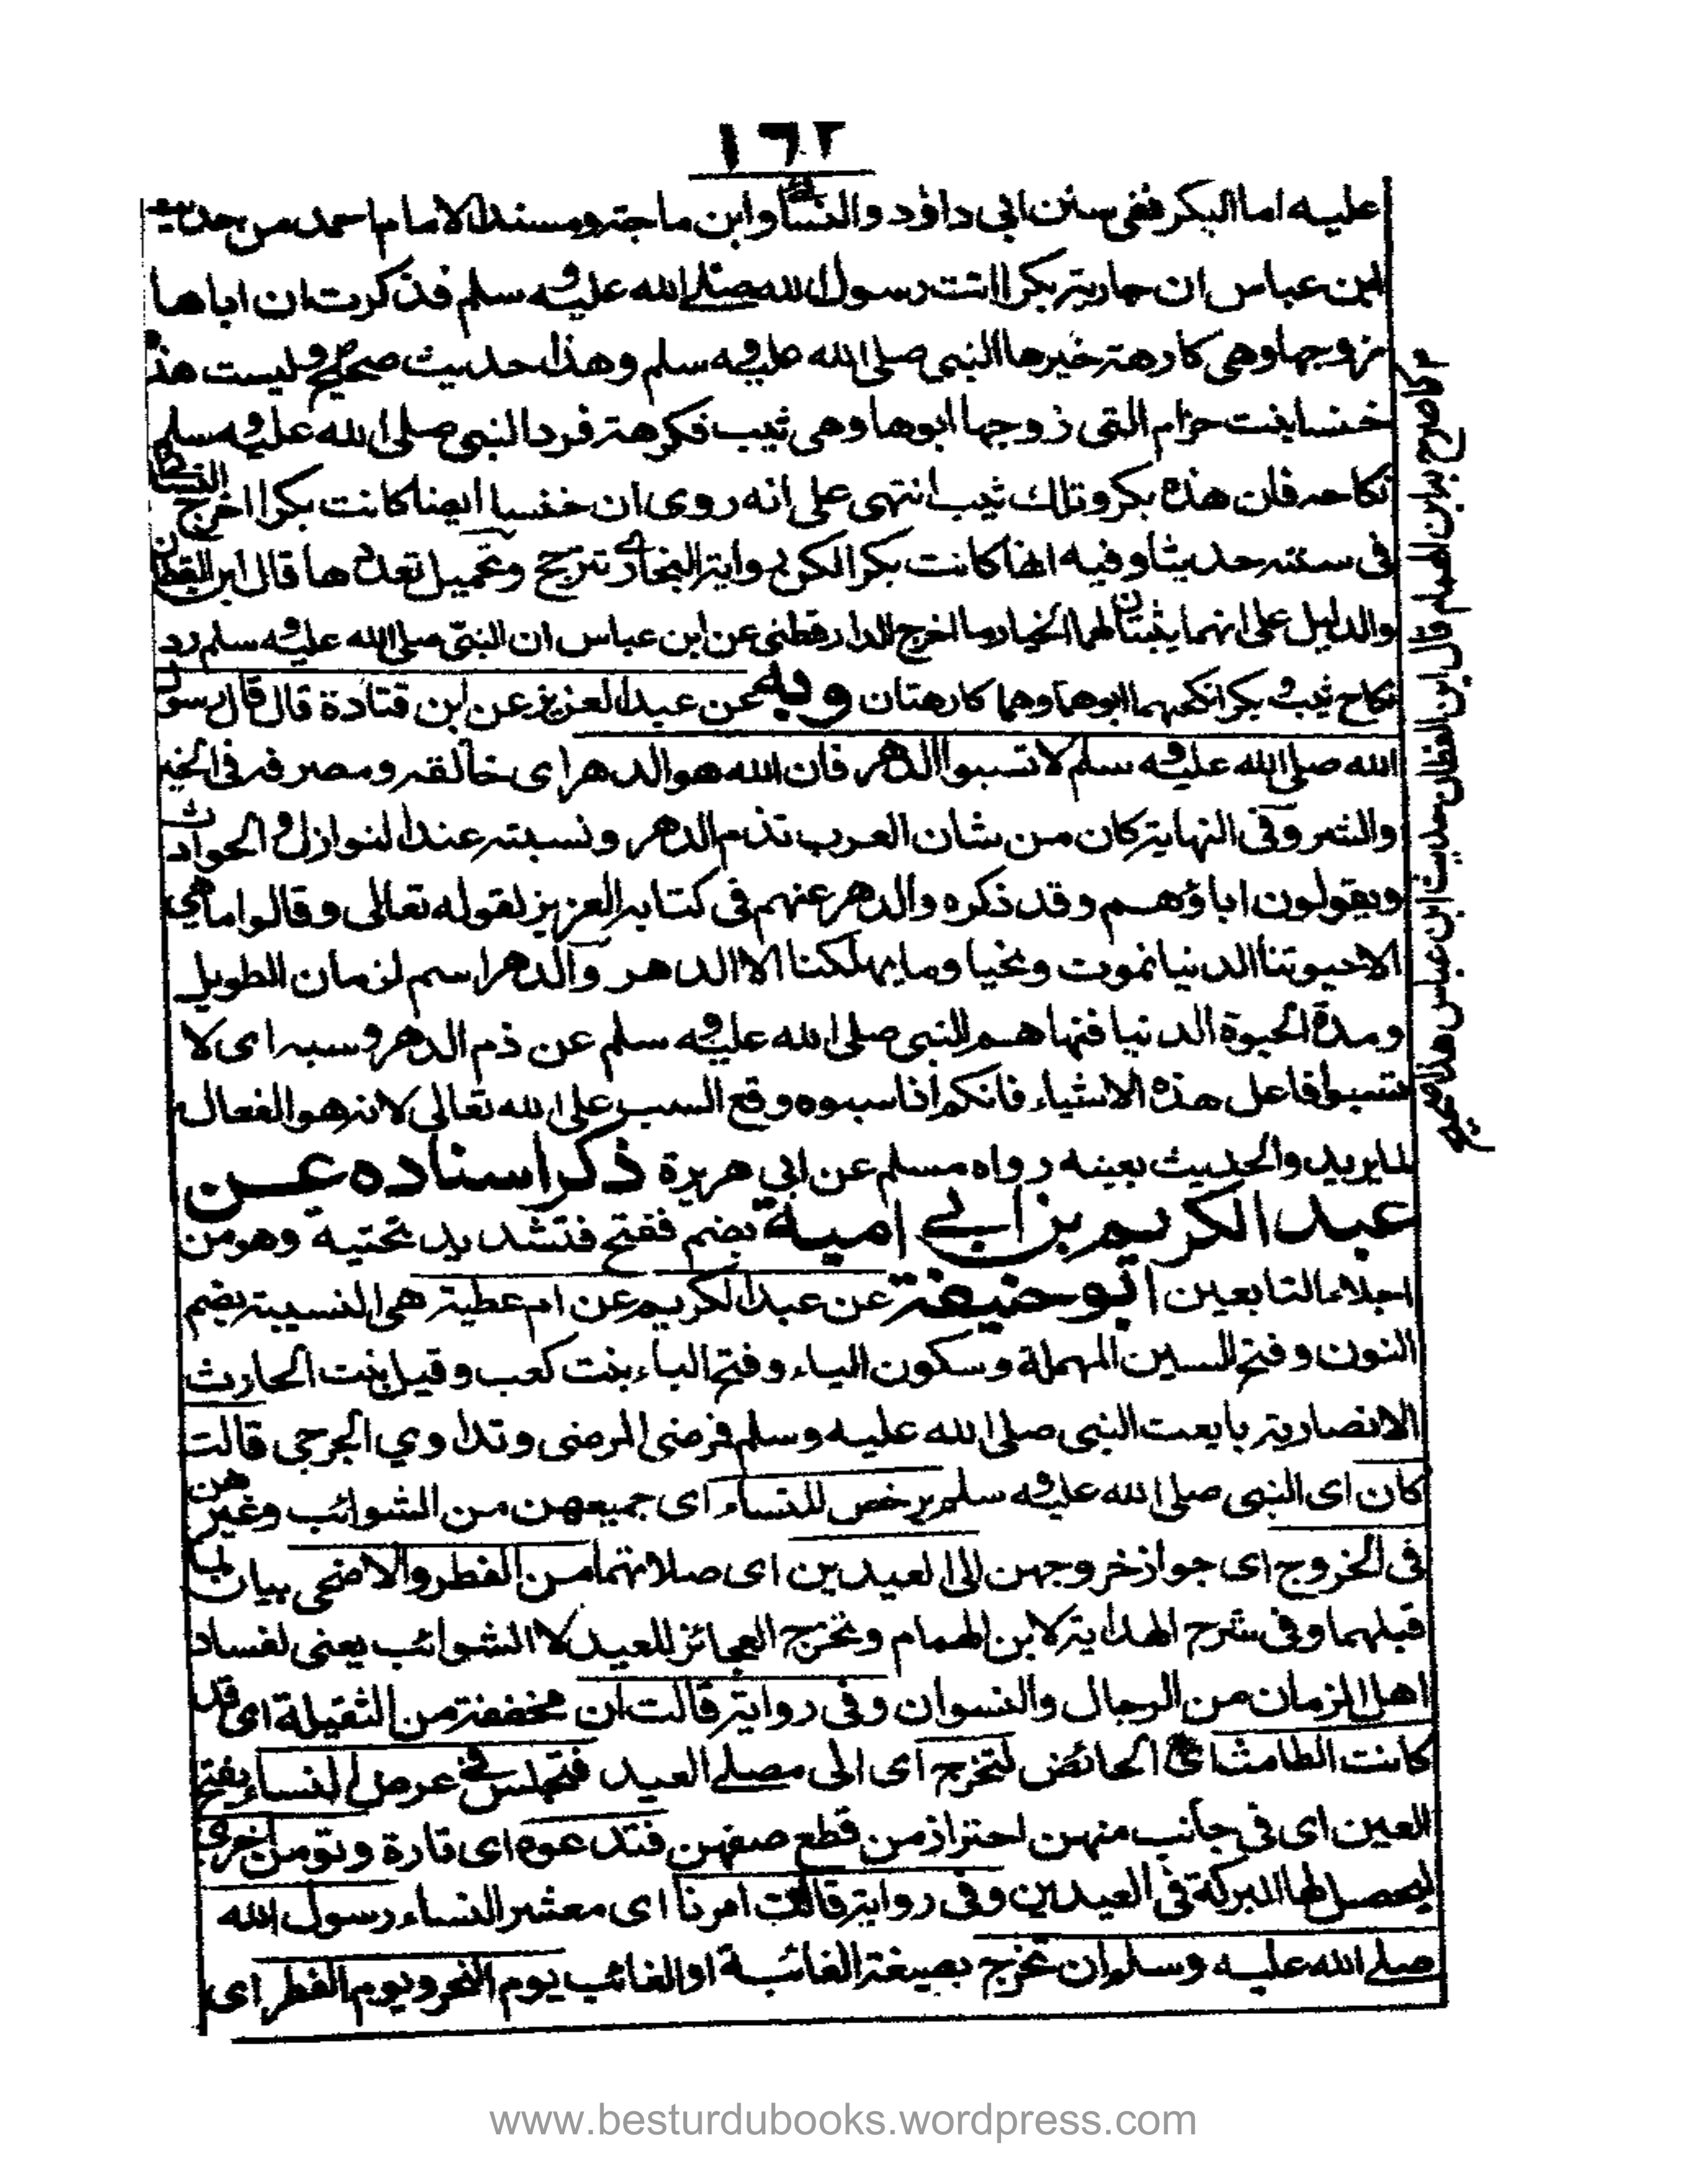 ١٦٢
عليه اما البكر ففى سنن ابى داؤد والنسائى وابن ماجة ومسند الامام احمد من حديث
ابن عباس ان جارية بكرا اتت رسول الله صلے الله عليه وسلم فذكرت ان اباها
زوجها وهى كارهة خيرها النبى صلى الله عليه وسلم وهذا حديث صحيح وليست هذه
خنسا بنت حزام التى زوجها ابوها وهى ثيب فكرهته فرد النبى صلى الله عليه وسلم
نكاحه فان هذه بكر وتلك ثيب انتهى على انه روى ان خنسا ايضا كانت بكرا اخرج النسائى
فى سننه حديثا وفيه انها كانت بكرا لكن رواية البخارى تترجح وتحميل تعددها قال ابن القطان
والدليل على انهما يثبتان لهما الخيار وما اخرج الدارقطنى عن ابن عباس ان النبى صلى الله عليه وسلم رد
نكاح ثيب وبكر انكحهما ابوهما وهما كارهتان وبه عن عبد العزيز عن ابن قتادة قال قال رسول
الله صلى الله عليه وسلم لا تسبوا الدهر فان الله هو الدهر اى خالقه ومصرفه فى الخير
والشر وفى النهاية كان من شان العرب تذم الدهر ونسبته عند النوازل والحوادث
ويقولون اباؤهم وقد ذكره والدهر عنهم فى كتابه العزيز لقوله تعالى وقالوا ما هى
الا حيوتنا الدنيا نموت ونحيا وما يهلكنا الا الدهر والدهر اسم لزمان الطويل
ومدة الحيوة الدنيا فنهاهم النبى صلى الله عليه وسلم عن ذم الدهر وسبه اى لا
تسبوا فاعل هذه الاشياء فانكم اذا سبوه وقع السب على الله تعالى لانه هو الفعال
لما يريد والحديث بعينه رواه مسلم عن ابى هريرة ذكر اسناده عن
عبد الكريم بن ابے امية بضم ففتح فتشديد تحتية وهو من
اجلاء التابعين ابو حنيفة عن عبد الكريم عن ام عطية هى النسيبة بضم
النون وفتح السين المهملة وسكون الياء وفتح الباء بنت كعب وقيل بنت الحارث
الانصارية بايعت النبى صلى الله عليه وسلم فرضى المرضى وتداوي الجرحى قالت
كان اى النبى صلى الله عليه وسلم يرخص للنساء اى جميعهن من الشوائب وغيرهن
فى الخروج اى جواز خروجهن الى العيدين اى صلاتهما من الفطر والاضحى بيان لما
قبلهما وفى شرح الهداية لابن الهمام وتخرج العجائز للعيد لا الشوائب يعنى لفساد
اهل الزمان من الرجال والنسوان وفى رواية قالت ان مخففة من الثقيلة اى قد
كانت الطامث اى الحائض لتخرج اى الى مصلے العيد فتجلس فى عرض النساء بفتح
العين اى فى جانب منهن احتراز من قطع صفهن فتدعوه اى قارة وتؤمن اخرى
ليحصل لها البركة فى العيدين وفى رواية قالت امرنا اى معشر النساء رسول الله
صلے الله عليه وسلم ان تخرج بصيغة الغائبة او الغائب يوم النحر ويوم الفطر اى
كما صرح به ابن الهمام وقال ابن القطان حديث ابن عباس هذا صحيح
www.besturdubooks.wordpress.com